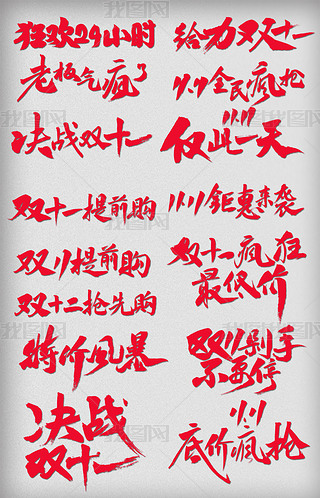 狂欢24小时
给力双十一
老板气疯了
11.11全民疯抢
决战双十一
11.11
仅此一天
双十一提前购
11.11钜惠来袭
双11提前购
双十一疯狂
最低价
双十二抢先购
特价风暴
双11剁手
不要停
决战
双十一
11.11
底价疯抢